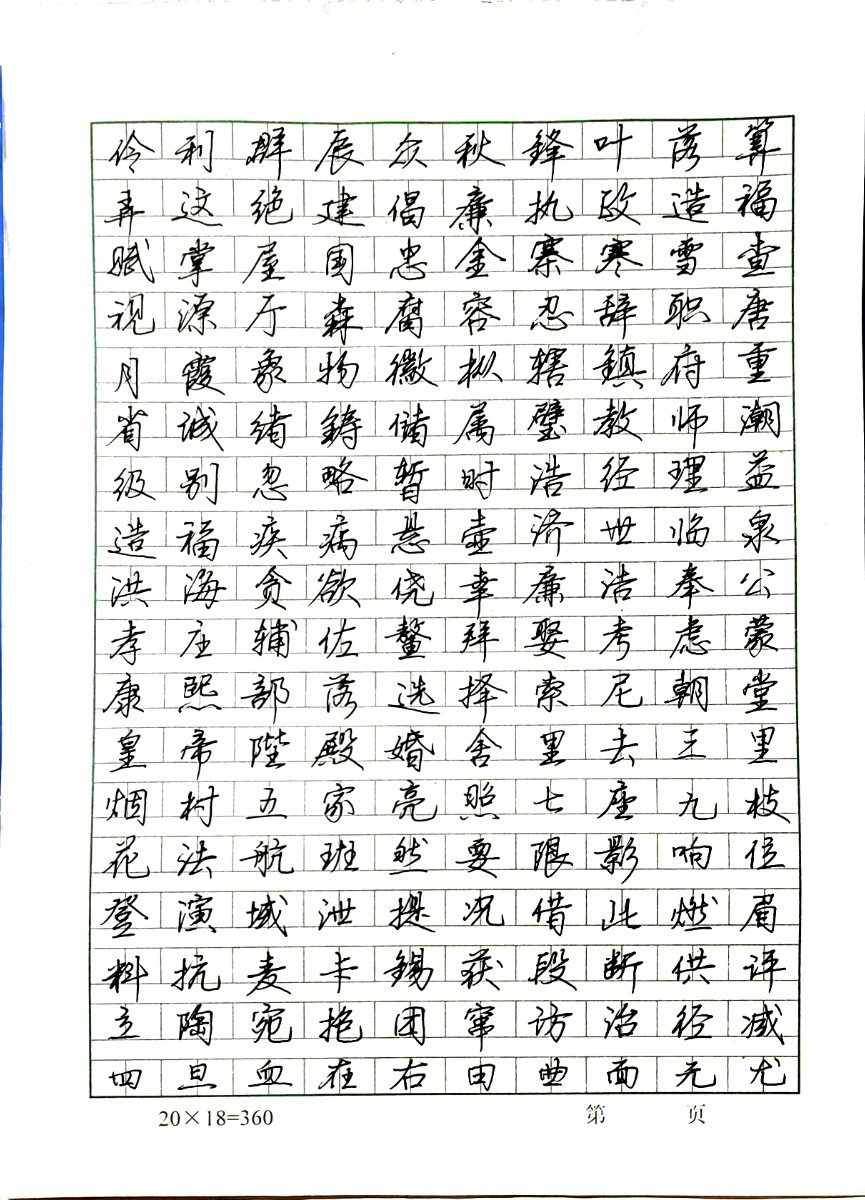 伶利群辰众秋锋叶落算
弄这绝建倡廉执政造福
赋掌屋国忠金寨寒雪查
视源厅森腐容忍辞职唐
月霞象物徽枞辖鎮府重
省诚绪鋳储属璧教师潮
级别忽略暂时浩经理益
造福疾病悬壶济世临泉
洪海贪欲侥幸廉洁奉公
孝庄辅佐鳌拜娶考虑蒙
康熙部落选择索尼朝堂
皇帝陛殿婚舍里去三里
烟村五家亮照七座九枝
花法航班然要限影响位
登演域泄提况借此燃眉
料抗麦卡錫获段断供评
立陶宛抱团窜访治径减
四旦血在右由曲面光尤
20×18=360
第 页